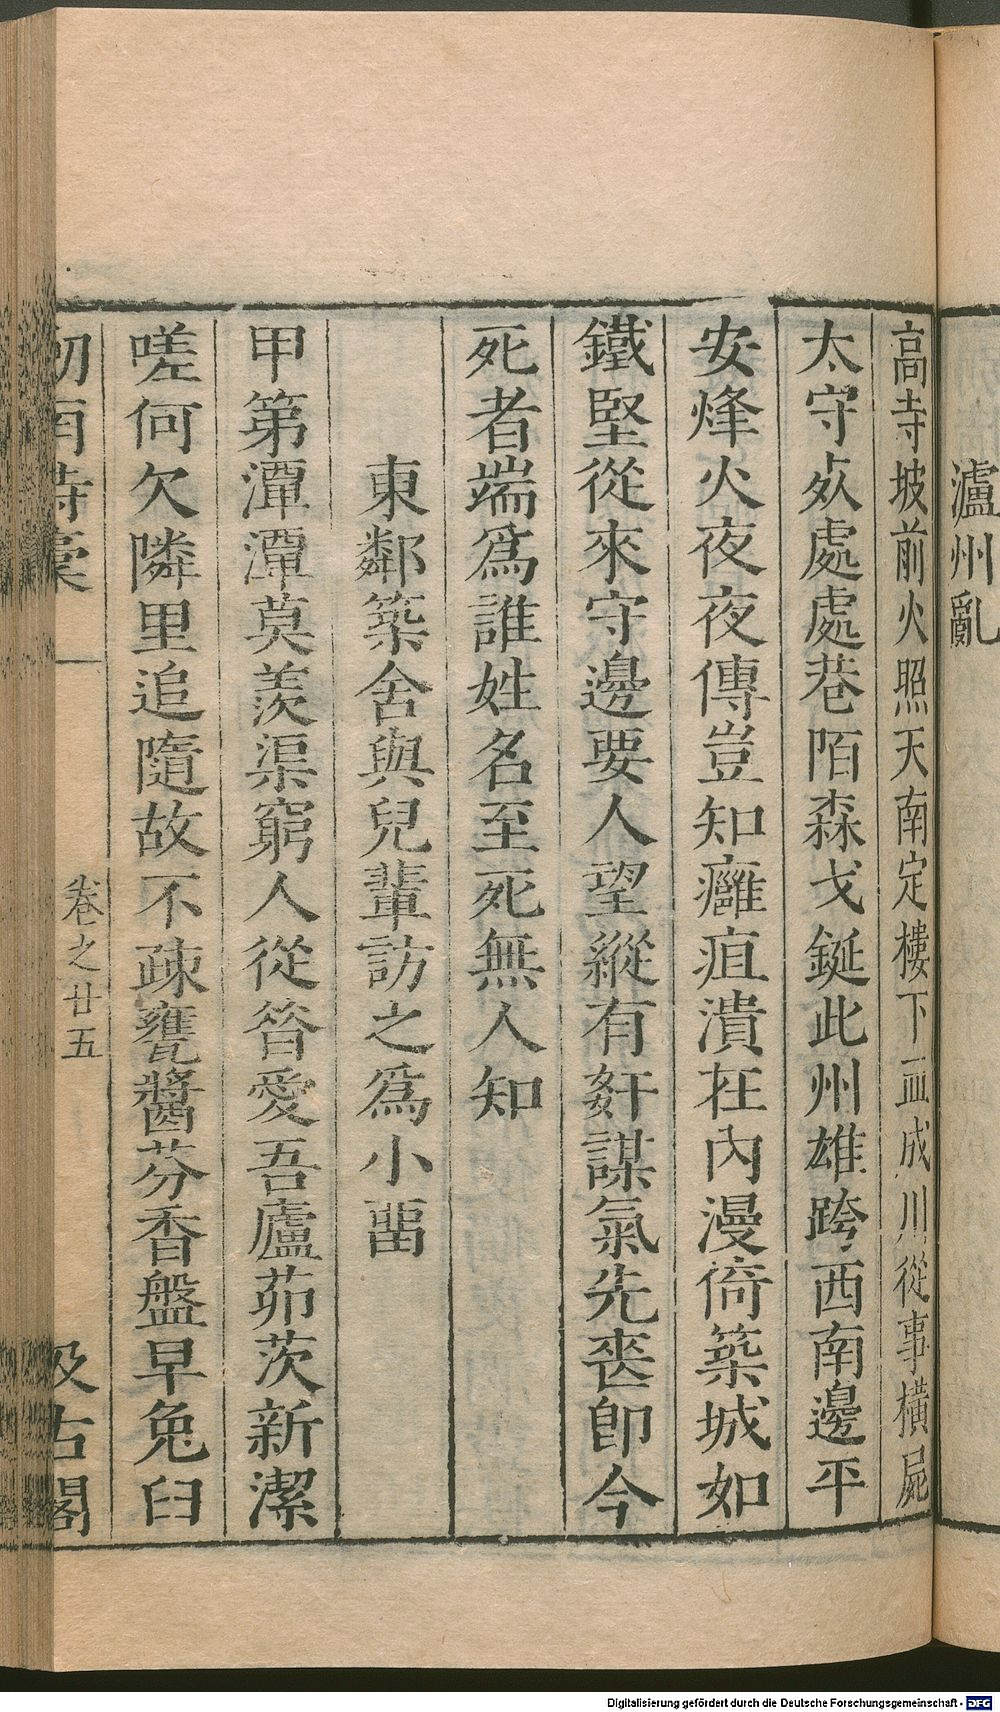 瀘州亂
高寺坡前火照天南定樓下血成川從事橫屍
太守㱙處處巷陌森戈鋋此州雄跨西南邊平
安烽火夜夜傳豈知癰疽潰在內漫倚築城如
鐵堅從來守邊要人望縱有奸謀氣先喪卽今
死者端爲誰姓名至死無人知
東鄰築舍與兒輩訪之爲小畱
甲第潭潭莫羨渠窮人從昝愛吾廬茆茨新潔
嗟何欠隣里追隨故不疎甕醬芬香盤早兔臼
劒南詩槀
卷之廿五
汲古閣
Digitalisierung gefördert durch die Deutsche Forschungsgemeinschaft - DFG